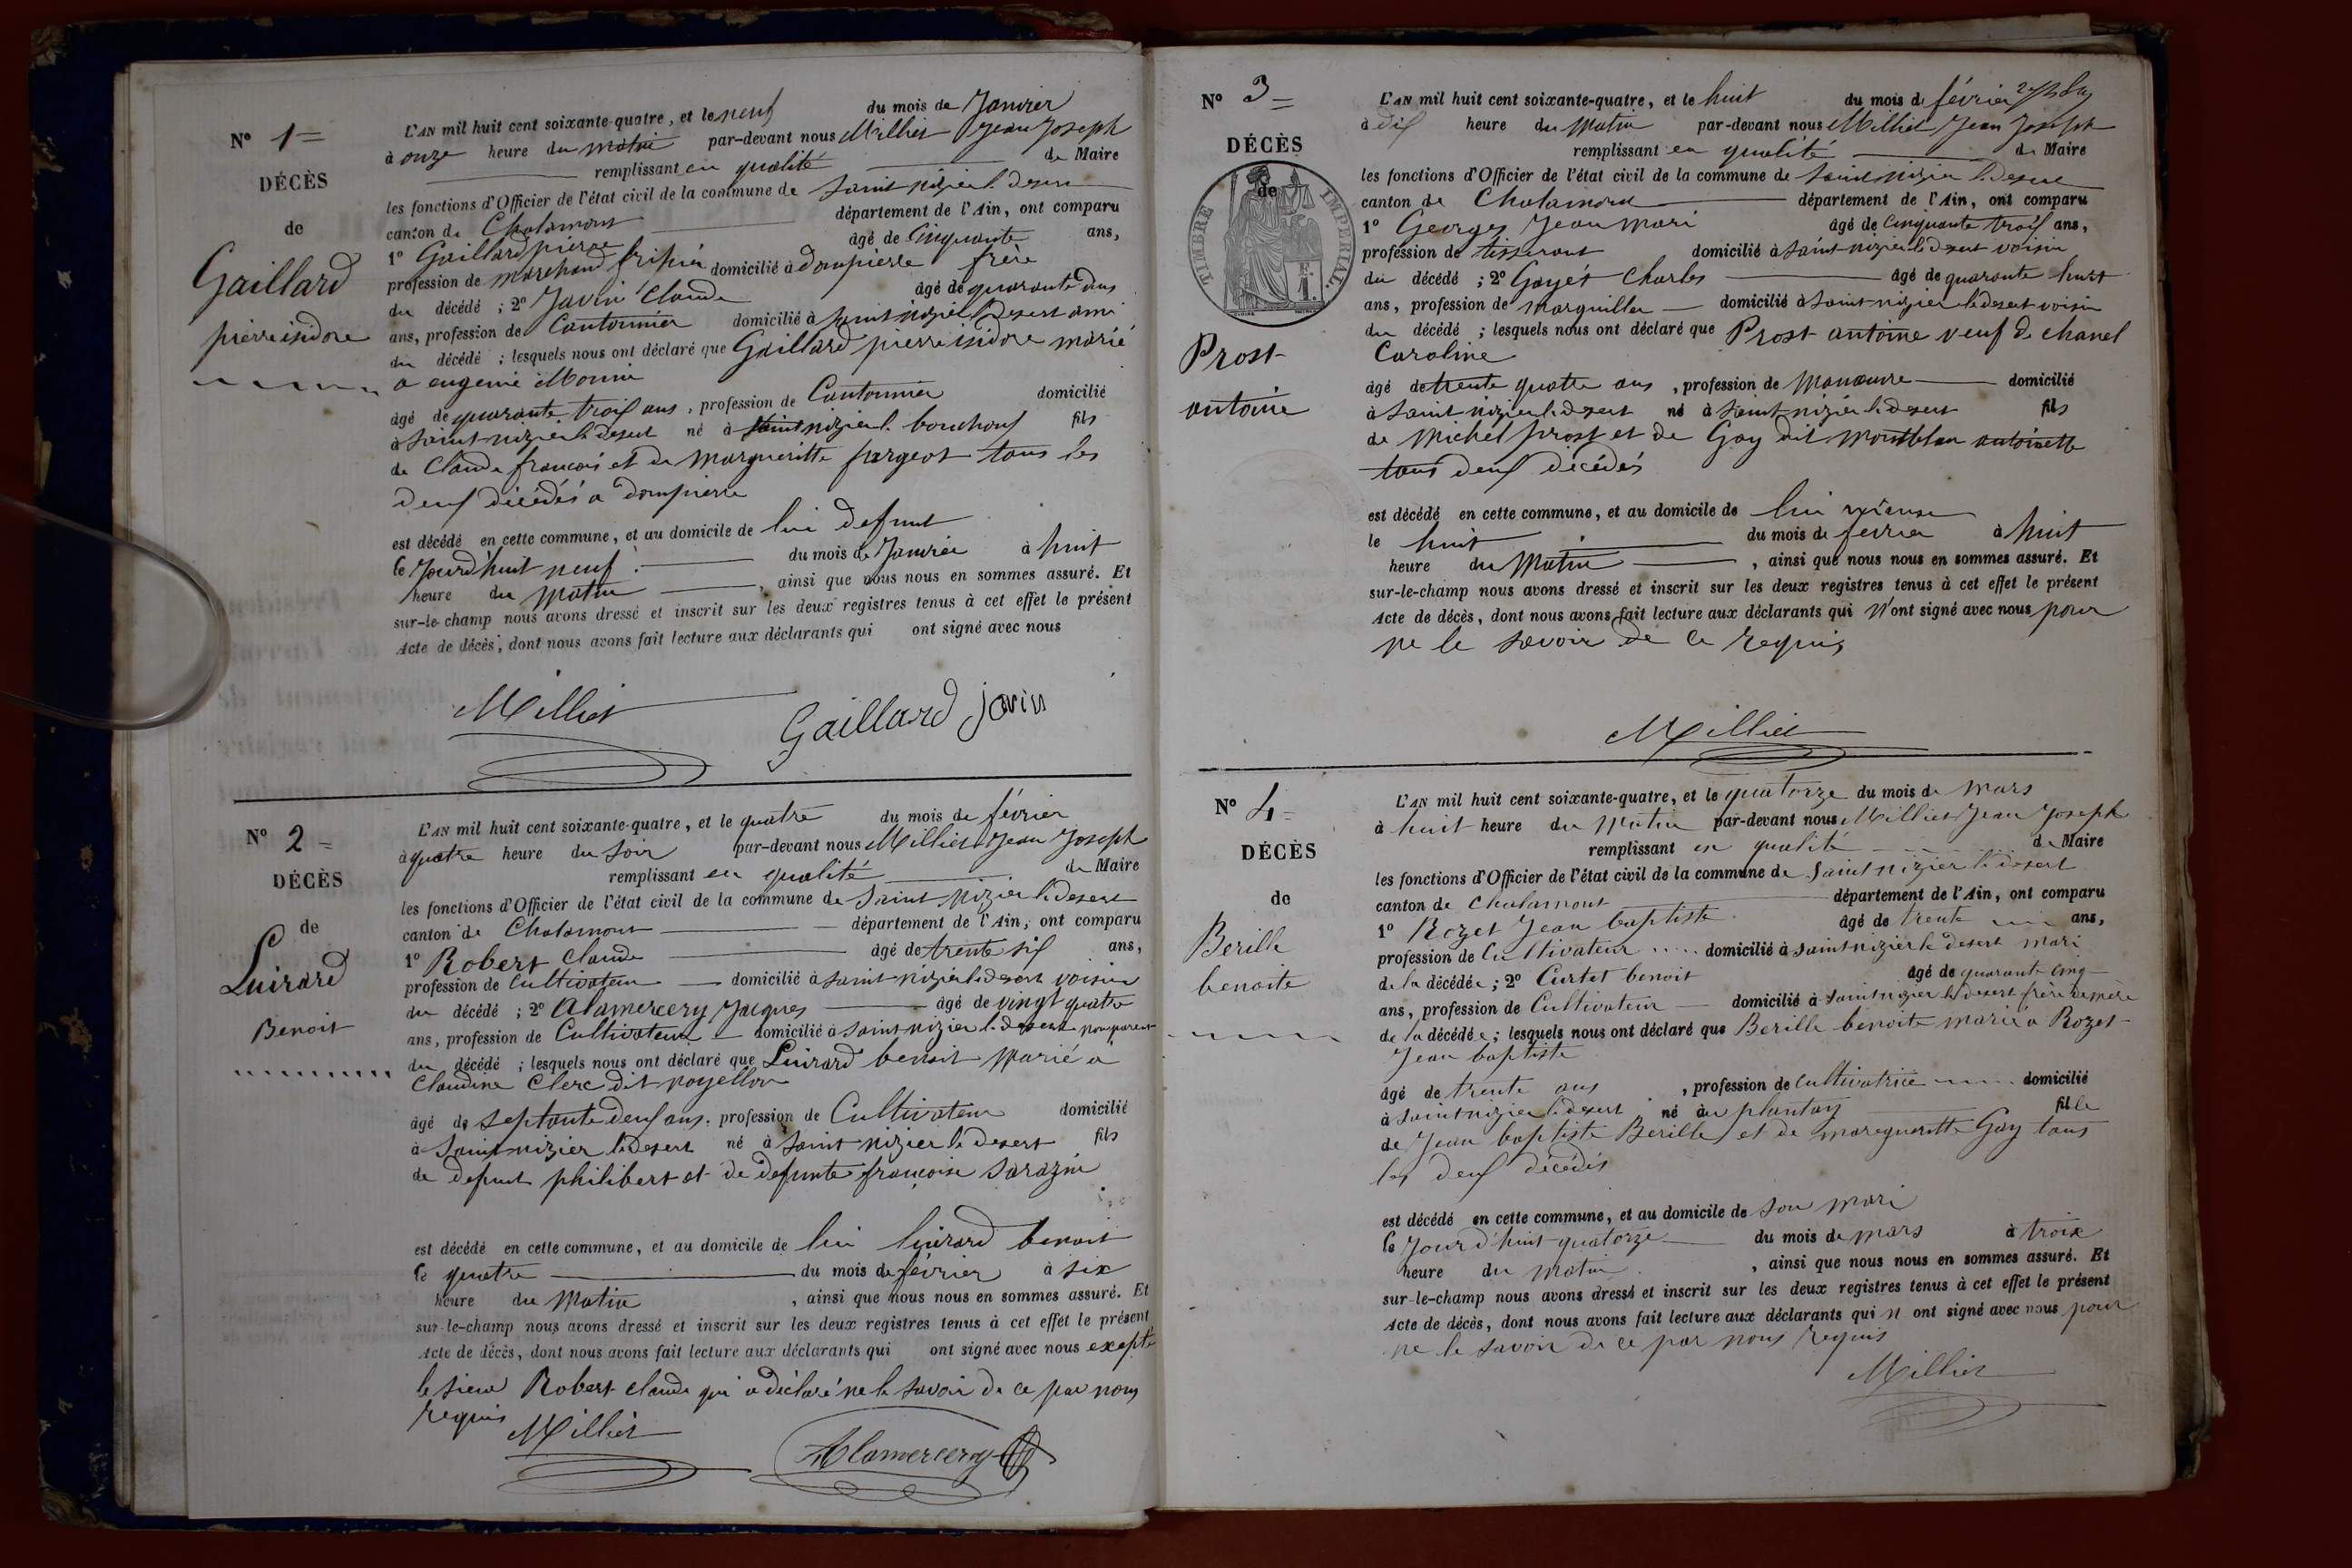 N° 1 =
DÉCÈS
de
Gaillard
pierre isidore
L'AN mil huit cent soixante-quatre, et le neuf du mois de Janvier
à onze heure du matin par-devant nous Milliet Jean Joseph
remplissant en qualité de Maire
les fonctions d'Officier de l'état civil de la commune de Saint nizier le desert
canton de Chalamont département de l'Ain, ont comparu
1° Gaillard pierre âgé de Cinquante ans,
profession de marchand fripier domicilié à dompierre frère
du décédé ; 2° Javin Claude âgé de quarante deux
ans, profession de Cantonnier domicilié à Saint nizier le Desert ami
du décédé ; lesquels nous ont déclaré que Gaillard pierre isidore marié
a eugenie Monin
âgé de quarante trois ans, profession de Cantonnier domicilié
à Saint nizier le desert né à Saint nizier le bouchoux fils
de Claude francois et de Margueritte fargeot tous les
deux décédés a dompierre
est décédé en cette commune, et au domicile de lui defunt
le Jourd'huit neuf du mois de Janvier à huit
heure du Matin, ainsi que nous nous en sommes assuré. Et
sur-le-champ nous avons dressé et inscrit sur les deux registres tenus à cet effet le présent
Acte de décès, dont nous avons fait lecture aux déclarants qui ont signé avec nous
Milliet Gaillard javin
N° 2 =
DÉCÈS
de
Luirard
Benoit
L'AN mil huit cent soixante-quatre, et le quatre du mois de février
à quatre heure du Soir par-devant nous Milliet Jean Joseph
remplissant en qualité de Maire
les fonctions d'Officier de l'état civil de la commune de Saint Nizier le Desert
canton de Chalamont département de l'Ain, ont comparu
1° Robert Claude âgé de trente six ans,
profession de Cultivateur domicilié à Saint nizier le desert voisin
du décédé ; 2° Alamercery Jaques âgé de vingt quatre
ans, profession de Cultivateur domicilié à Saint nizier le desert non parent
du décédé ; lesquels nous ont déclaré que Luirard benoit Marié a
Claudine Clerc dit noyellon
âgé de septante deux ans, profession de Cultivateur domicilié
à Saint nizier le desert né à Saint nizier le desert fils
de defunt philibert et de defunte francoise Sarazin
est décédé en cette commune, et au domicile de lui luirard benoit
le quatre du mois de février à six
heure du Matin, ainsi que nous nous en sommes assuré. Et
sur-le-champ nous avons dressé et inscrit sur les deux registres tenus à cet effet le présent
Acte de décès, dont nous avons fait lecture aux déclarants qui ont signé avec nous excepté
le sieur Robert Claude qui a déclaré ne le savoir de ce par nous
requis Milliet
Alamercery
N° 3 =
DÉCÈS
de
TIMBRE IMPERIAL.
Prost
antoine
L'AN mil huit cent soixante-quatre, et le huit du mois de février
à dix heure du Matin par-devant nous Milliet Jean Joseph
remplissant en qualité de Maire
les fonctions d'Officier de l'état civil de la commune de Saint nizier le Desert
canton de Chalamont département de l'Ain, ont comparu
1° Georges Jean Mari âgé de Cinquante trois ans,
profession de tisserant domicilié à Saint nizier le desert voisin
du décédé ; 2° Gayet Charles âgé de quarante huit
ans, profession de Marguiller domicilié à Saint nizier le desert voisin
du décédé ; lesquels nous ont déclaré que Prost antoine veuf de chanel
Caroline
âgé de trente quatre ans, profession de Manœuvre domicilié
à Saint nizier le desert né à Saint nizier le desert fils
de Michel prost et de Gay dit montblan antoinette
tous deux décédés
est décédé en cette commune, et au domicile de lui même
le huit du mois de fevrier à huit
heure du Matin, ainsi que nous nous en sommes assuré. Et
sur-le-champ nous avons dressé et inscrit sur les deux registres tenus à cet effet le présent
Acte de décès, dont nous avons fait lecture aux déclarants qui N'ont signé avec nous pour
ne le savoir de ce requis
Milliet
N° 4 =
DÉCÈS
de
Berille
benoite
L'AN mil huit cent soixante-quatre, et le quatorze du mois de Mars
à huit heure du Matin par-devant nous Milliet Jean Joseph
remplissant en qualité de Maire
les fonctions d'Officier de l'état civil de la commune de Saint nizier le desert
canton de Chalamont département de l'Ain, ont comparu
1° Rozet Jean baptiste âgé de trente ans,
profession de Cultivateur domicilié à Saint nizier le desert mari
de la décédée ; 2° Curtet benoit âgé de quarante cinq
ans, profession de Cultivateur domicilié à Saint nizier le desert frère de mère
de la décédée ; lesquels nous ont déclaré que Berille benoite mariée a Rozet
Jean baptiste
âgé de trente ans, profession de Cultivatrice domicilié
à Saint nizier le desert né au plantay fille
de Jean baptiste Berille et de maregueritte Gay tous
les deux décédés
est décédé en cette commune, et au domicile de Son mari
le Jourd'huit quatorze du mois de mars à troix
heure du Matin, ainsi que nous nous en sommes assuré. Et
sur-le-champ nous avons dressé et inscrit sur les deux registres tenus à cet effet le présent
Acte de décès, dont nous avons fait lecture aux déclarants qui n ont signé avec nous pour
ne le savoir de ce par nous requis
Milliet